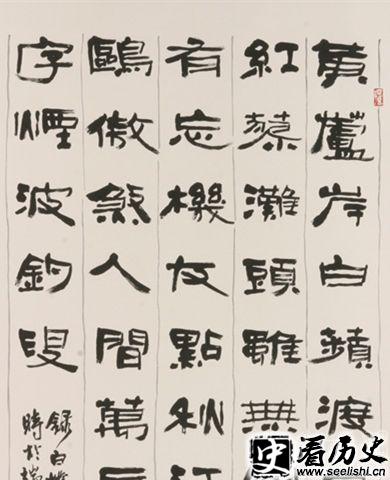 黄蘆岸白蘋渡
紅蓼灘頭雖無
有忘機友點秋江
鷗傲煞人間萬户
字煙波釣叟
錄白樸
時於
史 看历史
www.seelishi.cn